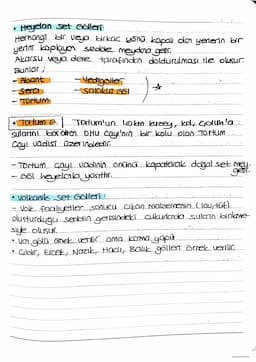 • Heyelan Set Gölleri
Herhangi bir veya birkaç yönü kapalı olan yenerin bir
yerini kaplıyan sedde meydana gelir.
Akarsu veya dere tarafından doldurulması ile oluşur.
Bunlar;
- Abant - Yedigöller
- Sera - Sülüklü göl
- Tortum
• Tortum G. Tortum'un 40km kuzeyi, kd,
sularını Oltu Çayı'nın bir kolu olan Tortum
Çayı vadisi üzerindedir.
- Tortum Çayı vadinin önünü kapatarak doğal set mey.
gelir.
- Göl heyelanla yaşıttır.
• Volkanik Set Gölleri:
- Volk. faaliyetler sonucu çıkan malzemenin (lav, tüf)
oluşturduğu seddin gerisindeki çukurlarda suların birikme-
siyle oluşur.
• Van gölü örnek verilir ama karma yapılı
• Çıldır, Erçek, Nazik, Haçlı, Balık gölleri örnek verilir.